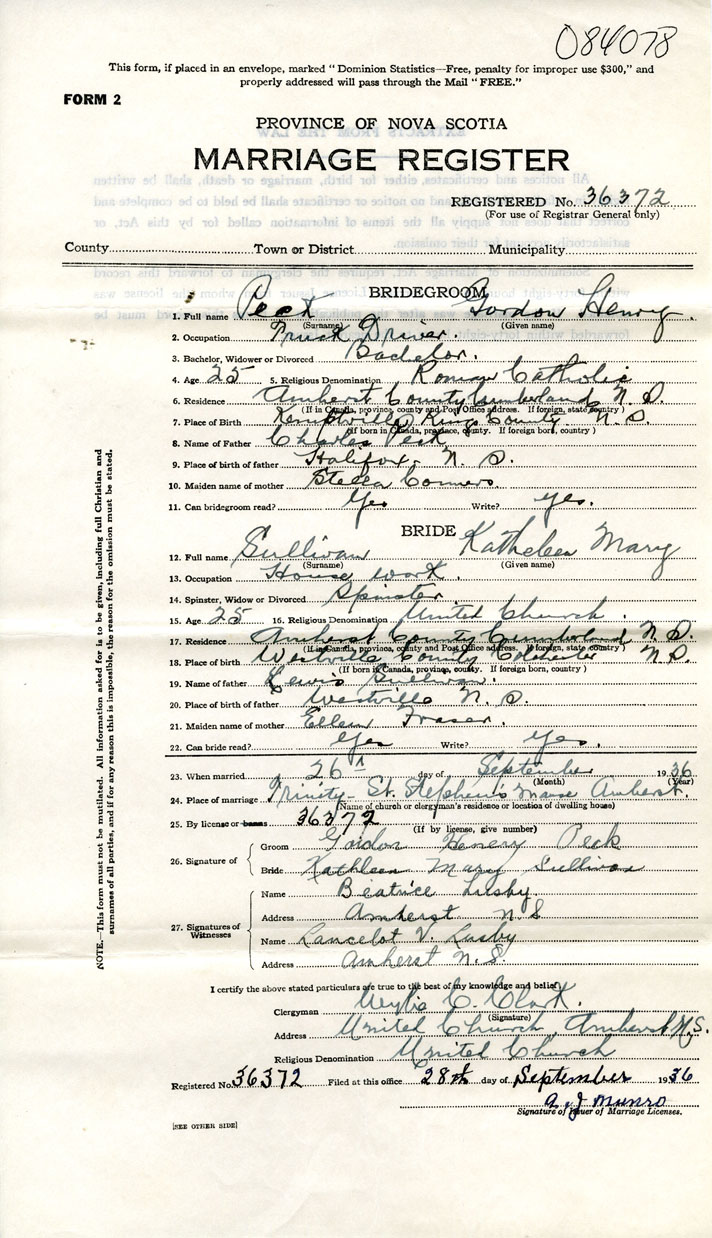 084078
This form, if placed in an envelope, marked "Dominion Statistics—Free, penalty for improper use $300," and
properly addressed will pass through the Mail "FREE."
FORM 2
PROVINCE OF NOVA SCOTIA
MARRIAGE REGISTER
REGISTERED No. 36372
(For use of Registrar General only)
County Town or District Municipality
BRIDEGROOM
1. Full name Peck Gordon Henry
(Surname) (Given name)
2. Occupation Truck Driver.
3. Bachelor, Widower or Divorced Bachelor.
4. Age 25 5. Religious Denomination Roman Catholic
6. Residence Amherst County Cumberland N. S.
(If in Canada, province, county and Post Office address. If foreign, state country)
7. Place of Birth Kemptville Kings County N. S.
(If born in Canada, province, county. If foreign born, country)
8. Name of Father Charles Peck
9. Place of birth of father Halifax N. S.
10. Maiden name of mother Stella Conners
11. Can bridegroom read? Yes Write? Yes.
BRIDE
12. Full name Sullivan Kathleen Mary
(Surname) (Given name)
13. Occupation House work.
14. Spinster, Widow or Divorced Spinster
15. Age 25 16. Religious Denomination United Church.
17. Residence Amherst County Cumberland N. S.
(If in Canada, province, county and Post Office address. If foreign, state country)
18. Place of birth Westville County Colchester N. S.
(If born in Canada, province, county. If foreign born, country)
19. Name of father Lewis Sullivan.
20. Place of birth of father Westville N. S.
21. Maiden name of mother Ellen Fraser.
22. Can bride read? Yes Write? Yes.
23. When married 26 day of September 1936
(Month) (Year)
24. Place of marriage Trinity-St. Stephen's Manse Amherst.
(Name of church or clergyman's residence or location of dwelling house)
25. By license or banns 36372
(If by license, give number)
26. Signature of
Groom Gordon Henery Peck
Bride Kathleen Mary Sullivan
27. Signatures of Witnesses
Name Beatrice Lusby
Address Amherst N S
Name Lancelot V. Lusby
Address Amherst N. S.
I certify the above stated particulars are true to the best of my knowledge and belief.
Clergyman C. Clark.
(Signature)
Address United Church, Amherst N.S.
Religious Denomination United Church
Registered No. 36372 Filed at this office 28th day of September 1936
A. J Munro
Signature of Issuer of Marriage Licenses.
[SEE OTHER SIDE]
NOTE.—This form must not be mutilated. All information asked for is to be given, including full Christian and
surnames of all parties, and if for any reason this is impossible, the reason for the omission must be stated.